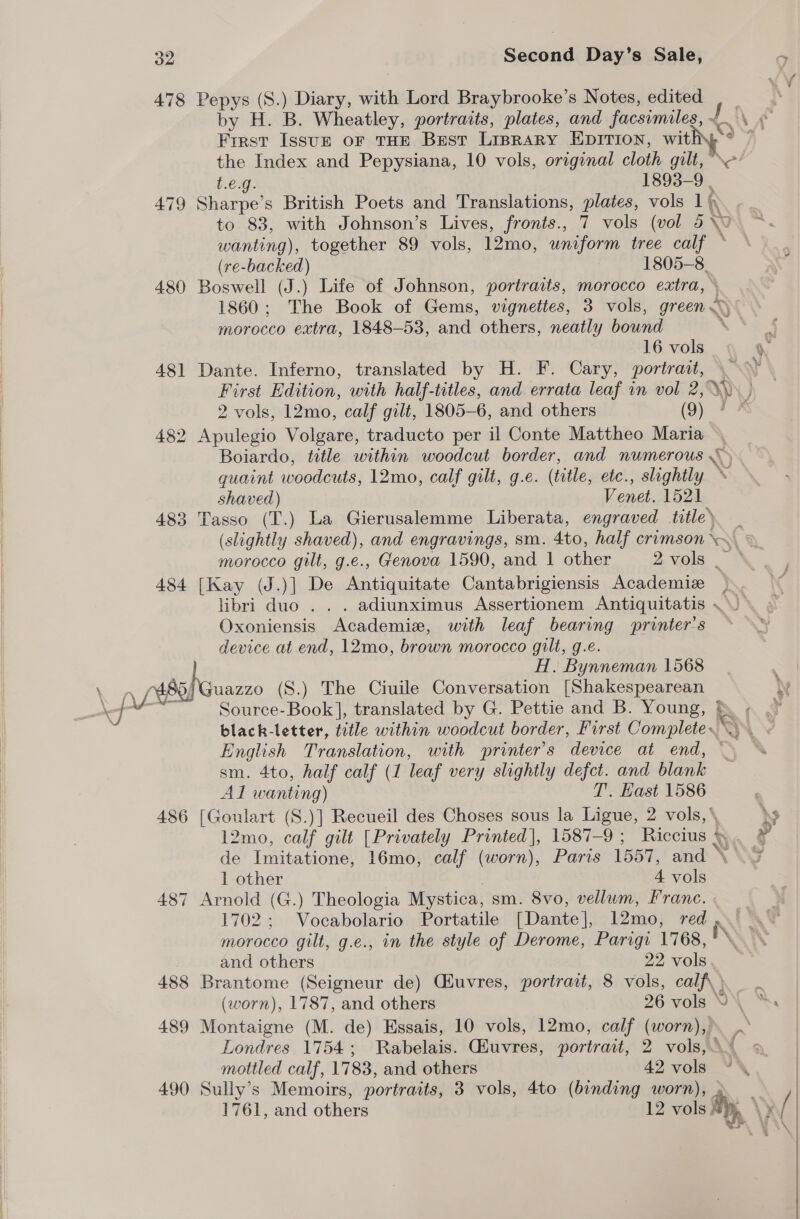 32 Second Day's Sale,
478 Pepys (S.) Diary, with Lord Braybrooke's Notes, edited
by H. B. Wheatley, portraits, plates, and facsimiles,
First Issue of the Best Library Edition, with
the Index and Pepysiana, 10 vols, original cloth gilt,
t.e.g. 1893-9
479 Sharpe's British Poets and Translations, plates, vols 1
to 83, with Johnson's Lives, fronts., 7 vols (vol 5
wanting), together 89 vols, 12mo, uniform tree calf
(re-backed) 1805-8
480 Boswell (J.) Life of Johnson, portraits, morocco extra,
1860; The Book of Gems, vignettes, 3 vols, green
morocco extra, 1848-53, and others, neatly bound
16 vols
481 Dante. Inferno, translated by H. F. Cary, portrait,
First Edition, with half-titles, and errata leaf in vol 2,
2 vols, 12mo, calf gilt, 1805-6, and others (9)
482 Apulegio Volgare, traducto per il Conte Mattheo Maria
Boiardo, title within woodcut border, and numerous
quaint woodcuts, 12mo, calf gilt, g.e. (title, etc., slightly
shaved) Venet. 1521
483 Tasso (T.) La Gierusalemme Liberata, engraved title
(slightly shaved), and engravings, sm. 4to, half crimson
morocco gilt, g.e., Genova 1590, and 1 other 2 vols
484 [Kay (J.)] De Antiquitate Cantabrigiensis Academiæ
libri duo . . . adiunximus Assertionem Antiquitatis
Oxoniensis Academiæ, with leaf bearing printer's
device at end, 12mo, brown morocco gilt, g.e.
H. Bynneman 1568
485 Guazzo (S.) The Ciuile Conversation [Shakespearean
Source-Book], translated by G. Pettie and B. Young,
black-letter, title within woodcut border, First Complete
English Translation, with printer's device at end,
sm. 4to, half calf (1 leaf very slightly defct. and blank
A1 wanting) T. East 1586
486 [Goulart (S.)] Recueil des Choses sous la Ligue, 2 vols,
12mo, calf gilt [Privately Printed], 1587-9; Riccius
de Imitatione, 16mo, calf (worn), Paris 1557, and
1 other 4 vols
487 Arnold (G.) Theologia Mystica, sm. 8vo, vellum, Franc.
1702; Vocabolario Portatile [Dante], 12mo, red
morocco gilt, g.e., in the style of Derome, Parigi 1768,
and others 22 vols
488 Brantome (Seigneur de) Œuvres, portrait, 8 vols, calf
(worn), 1787, and others 26 vols
489 Montaigne (M. de) Essais, 10 vols, 12mo, calf (worn),
Londres 1754; Rabelais. Œuvres, portrait, 2 vols,
mottled calf, 1783, and others 42 vols
490 Sully's Memoirs, portraits, 3 vols, 4to (binding worn),
1761, and others 12 vols